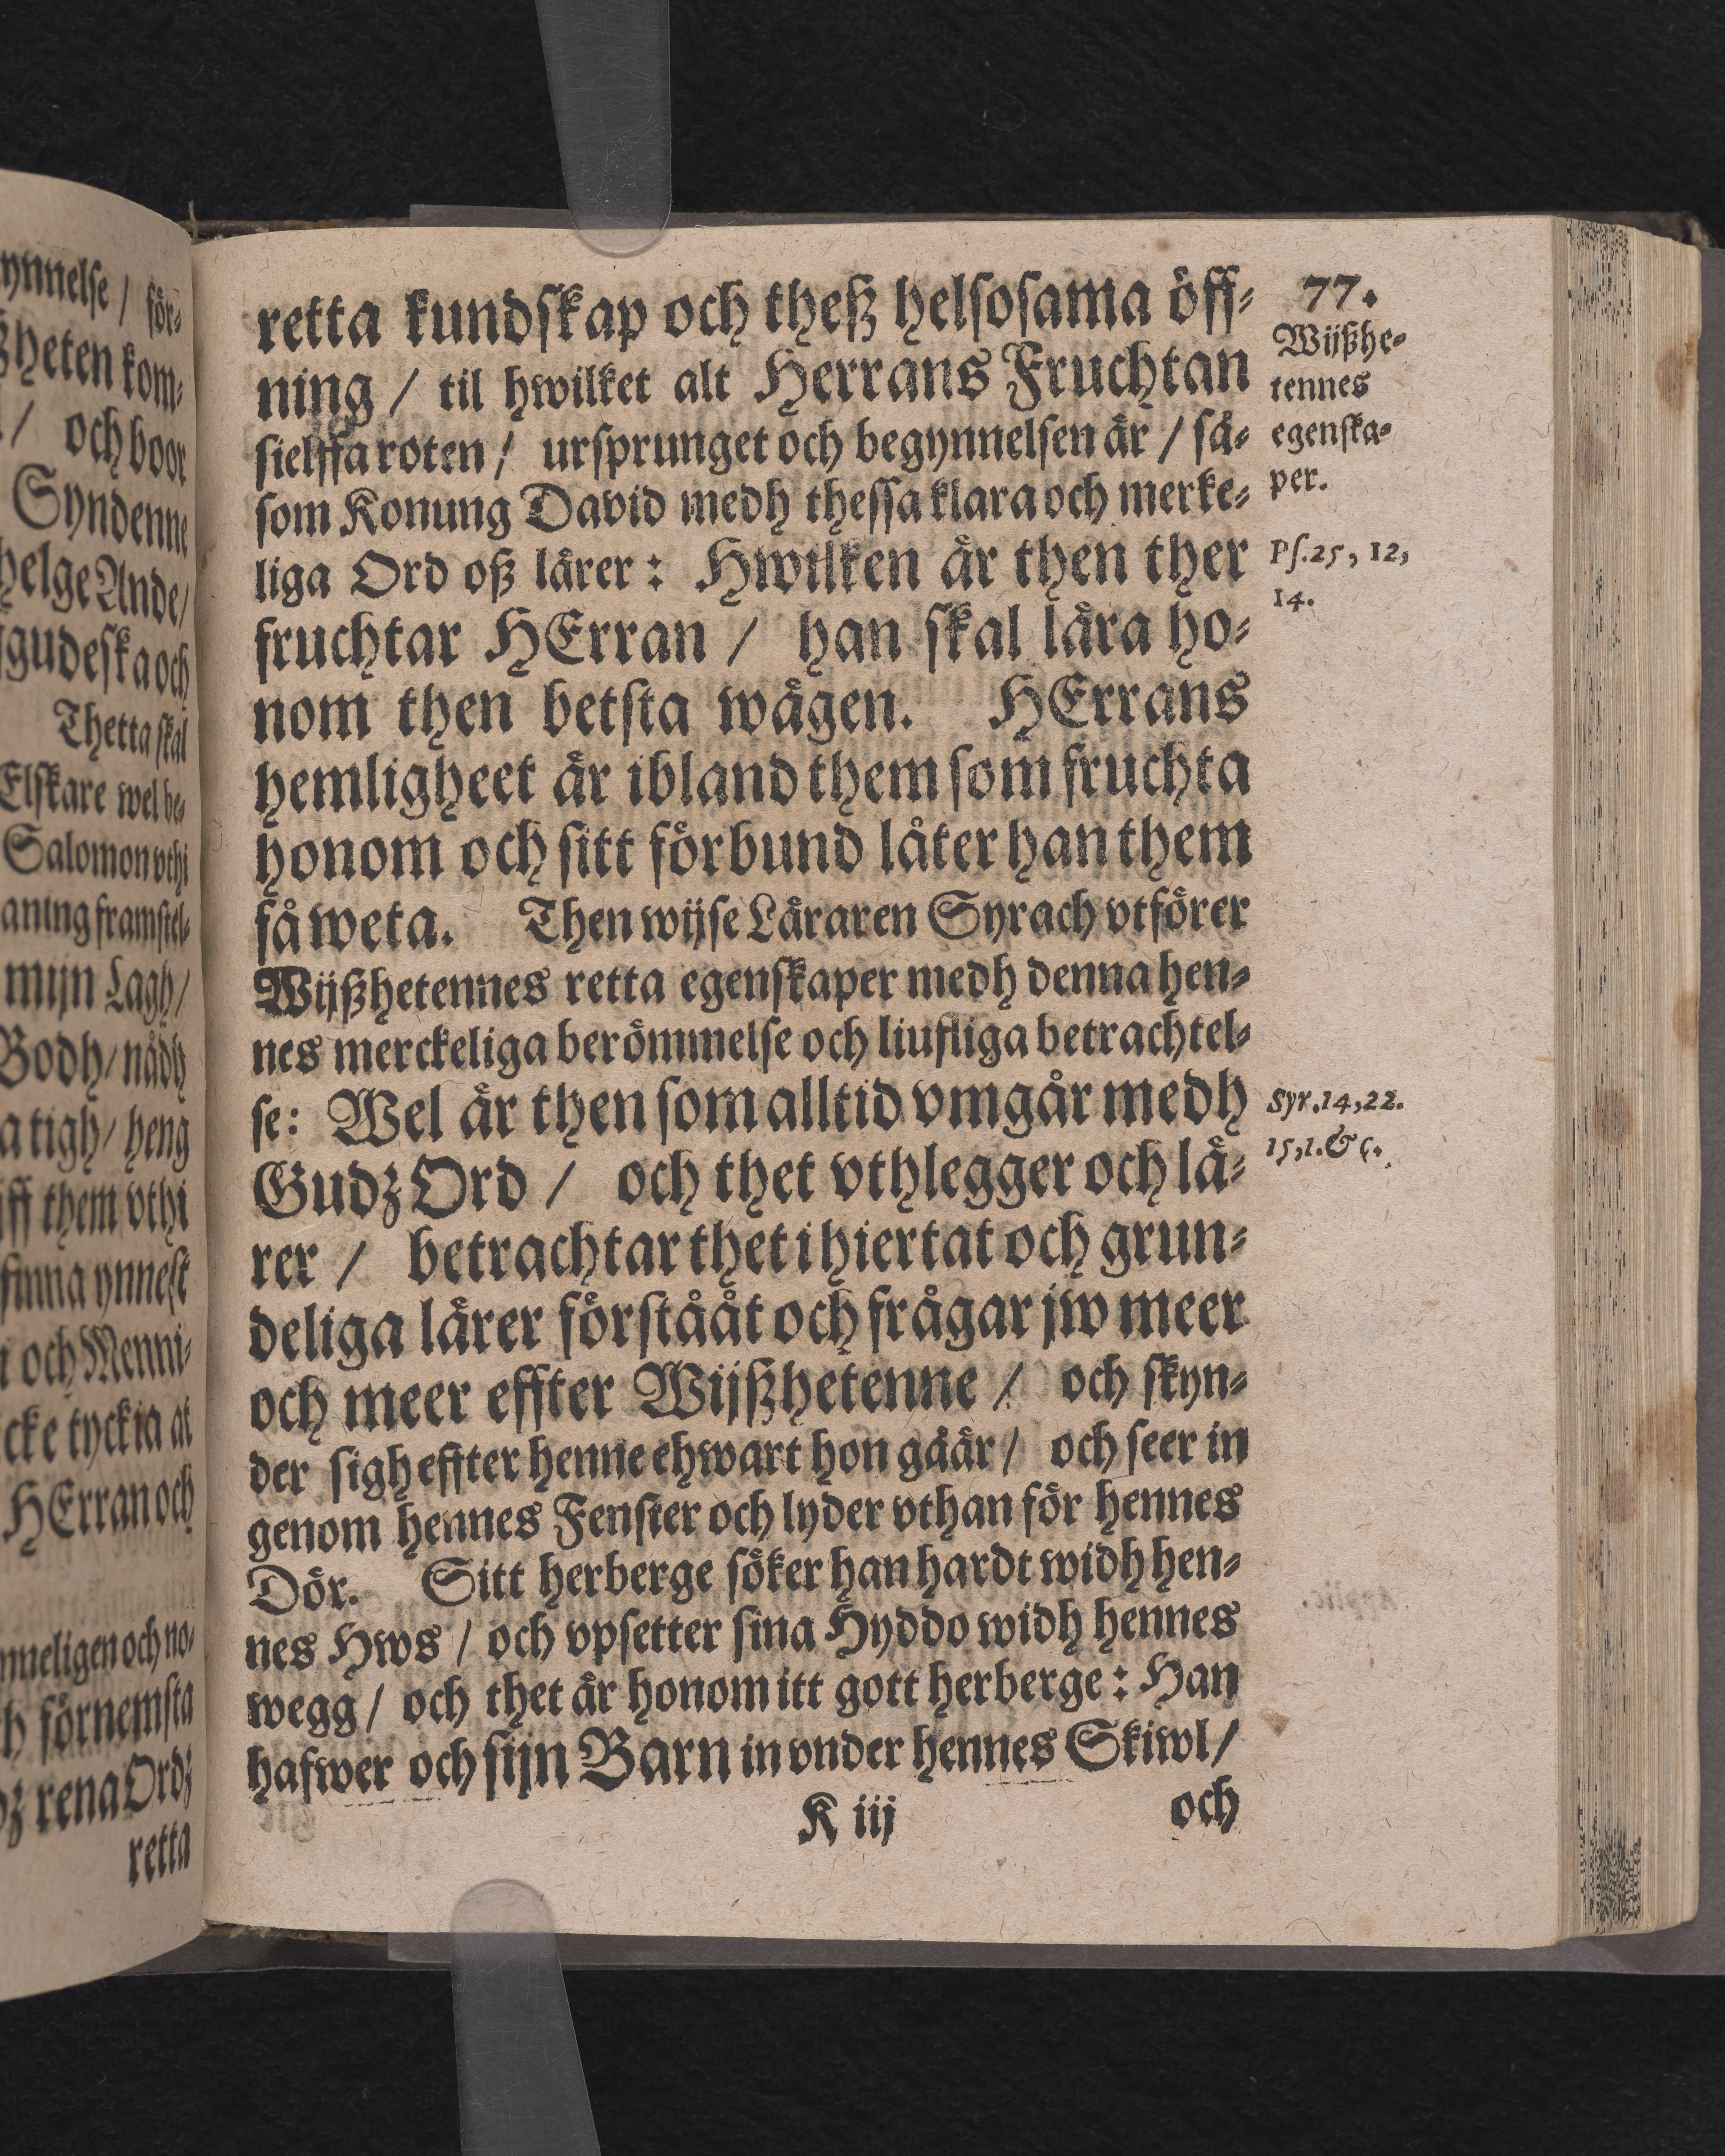 ynnelse / för-
ßheten kom-
/ och boor
Syndenne
helge Ande/
gudeska och
Thetta skal
Elskare wel be-
Salomon vthi
aning framstel-
mijn Lagh/
Bodh/ nådh
a tigh/ heng
iff them vthi
finna ynnest
och Menni-
cke tyckia at
HErran och
nneligen och no-
h förnemsta
dz rena Ordz
retta
77.
retta kundskap och theß helsosama öff-
ning / til hwilket alt Herrans Fruchtan
sielffa roten / ursprunget och begynnelsen är / så-
som Konung David medh thessa klara och merke-
liga Ord oß lärer : Hwilken är then ther
fruchtar HErran / han skal lära ho-
nom then betsta wägen. HErrans
hemligheet är ibland them som fruchta
honom och sitt förbund låter han them
få weta. Then wijse Läraren Syrach vtförer
Wijßhetennes retta egenskaper medh denna hen-
nes merckeliga berömmelse och liufliga betrachtel-
se: Wel är then som alltid vmgår medh
Gudz Ord / och thet vthlegger och lä-
rer / betrachtar thet i hiertat och grun-
deliga lärer förstååt och frågar jw meer
och meer effter Wijßhetenne / och skyn-
der sigh effter henne ehwart hon gåår / och seer in
genom hennes Fenster och lyder vthan för hennes
Dör. Sitt herberge söker han hardt widh hen-
nes Hws / och vpsetter sina Hyddo widh hennes
wegg / och thet är honom itt gott herberge : Han
hafwer och sijn Barn in vnder hennes Skiwl /
K iij
och
Wijßhe-
tennes
egenska-
per.
Ps. 25, 12,
14.
Syr. 14, 22.
15, 1. & c.